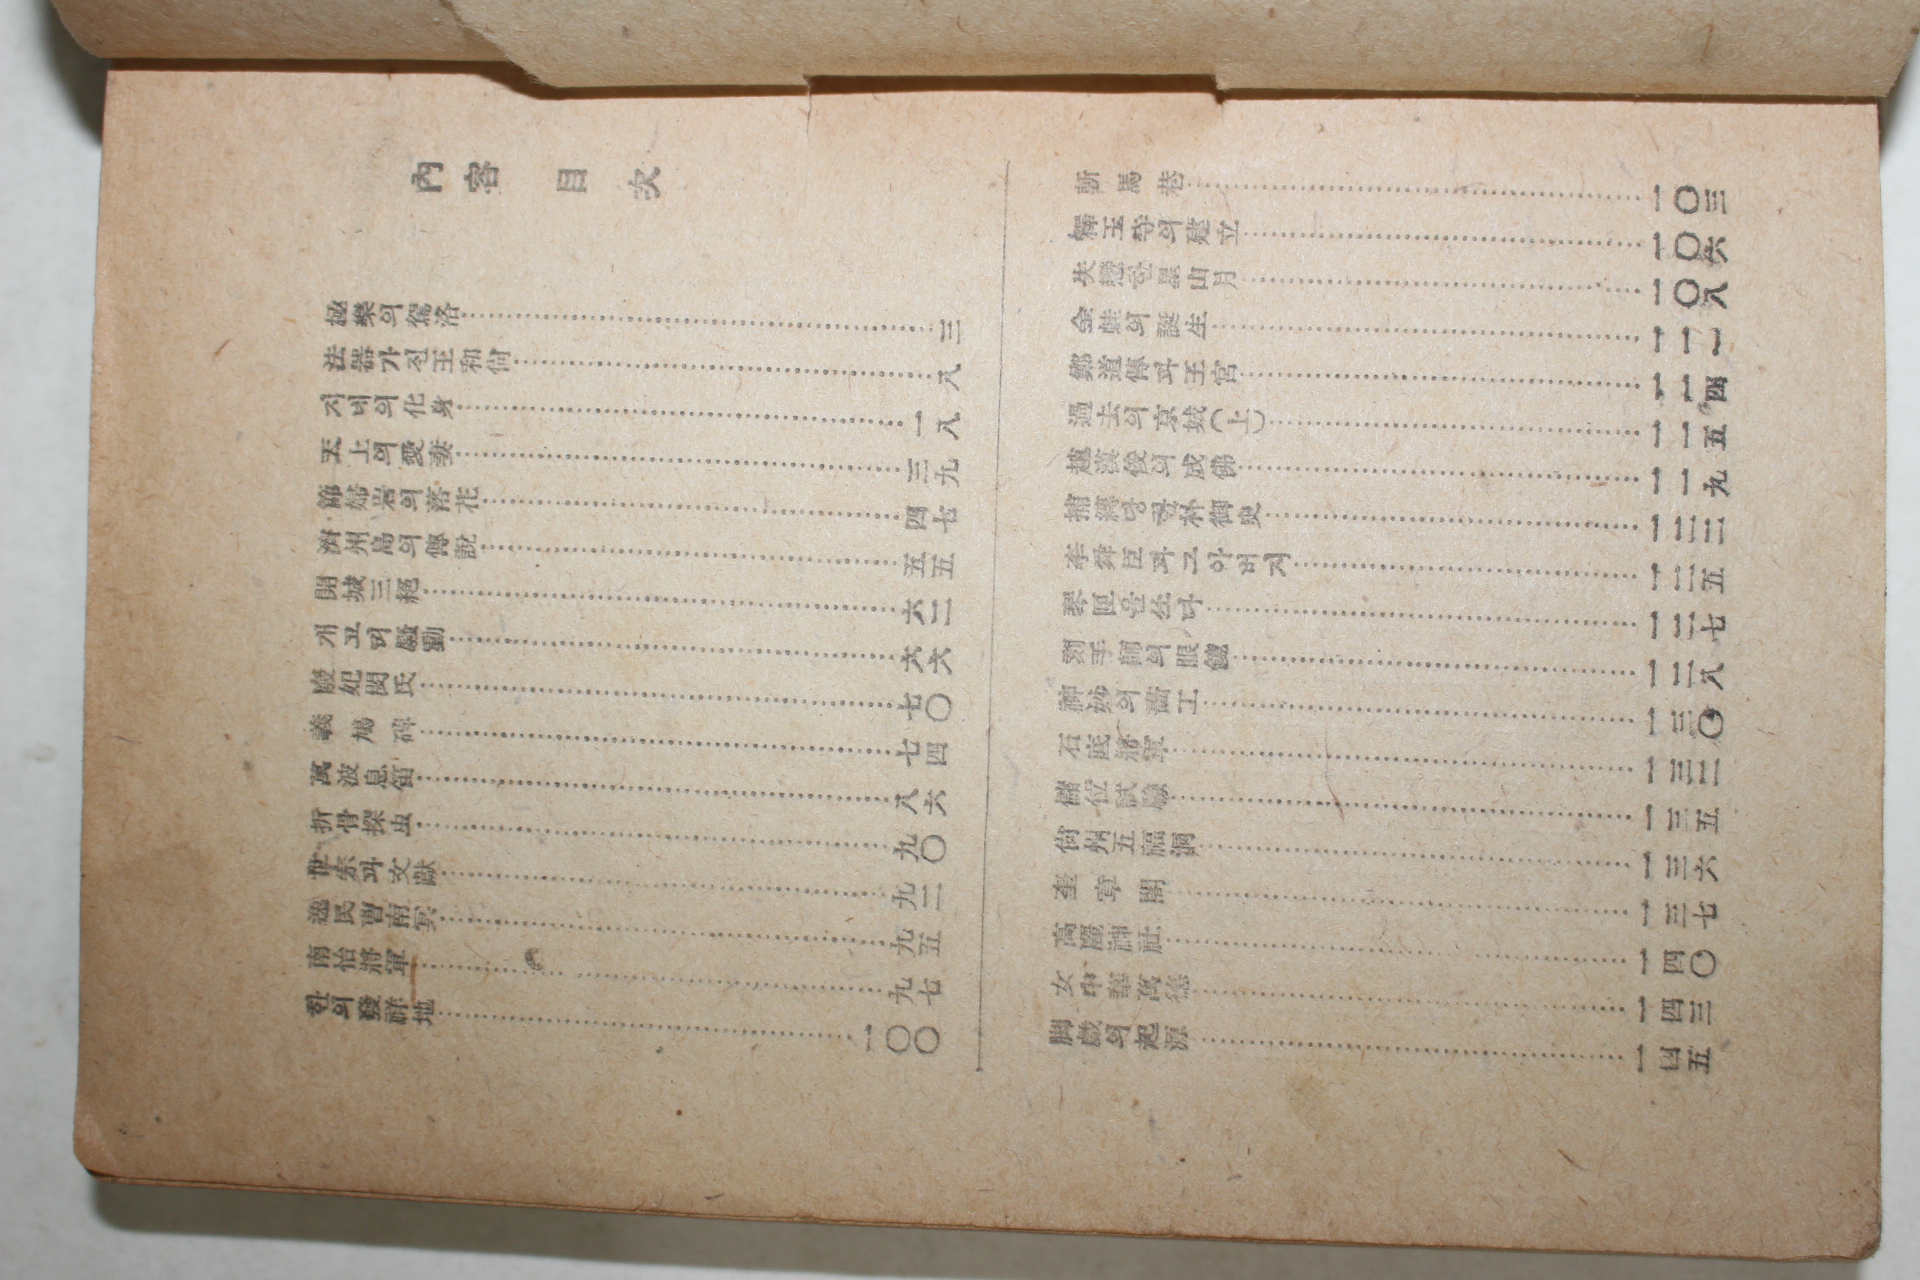 內容目次
極樂의 駕洛……三
法器가 진 王和尙……八
지네의 化身……一八
天上의 愛妻……三九
節婦岩의 落花……四七
濟州島의 傳說……五五
開城三絕……六二
개고퍼 騷動……六六
廢妃閔氏……七〇
義鳩碑……七四
萬波息笛……八六
折骨探虫……九〇
世宗과 文獻……九二
逸民曺南冥……九五
南怡將軍……九七
한의 發祥地……一〇〇
斬馬巷……一〇三
驛王寺의 建立……一〇六
失戀한 星山月……一〇八
金蛙의 誕生……一一一
鄭道傳과 王宮……一一四
過去의 京城(上)……一一五
趙漢俊의 成佛……一一九
捕繩당한 朴御史……一二二
李舜臣과 그 아버지……一二五
琴匣을 쏘다……一二七
別手師의 眼鏡……一二八
神妙의 畵工……一三〇
石底將軍……一三二
儲位試驗……一三五
尙州五福洞……一三六
奎章閣……一三七
高麗神社……一四〇
女中 萬德……一四三
脚戱의 起源……一四五